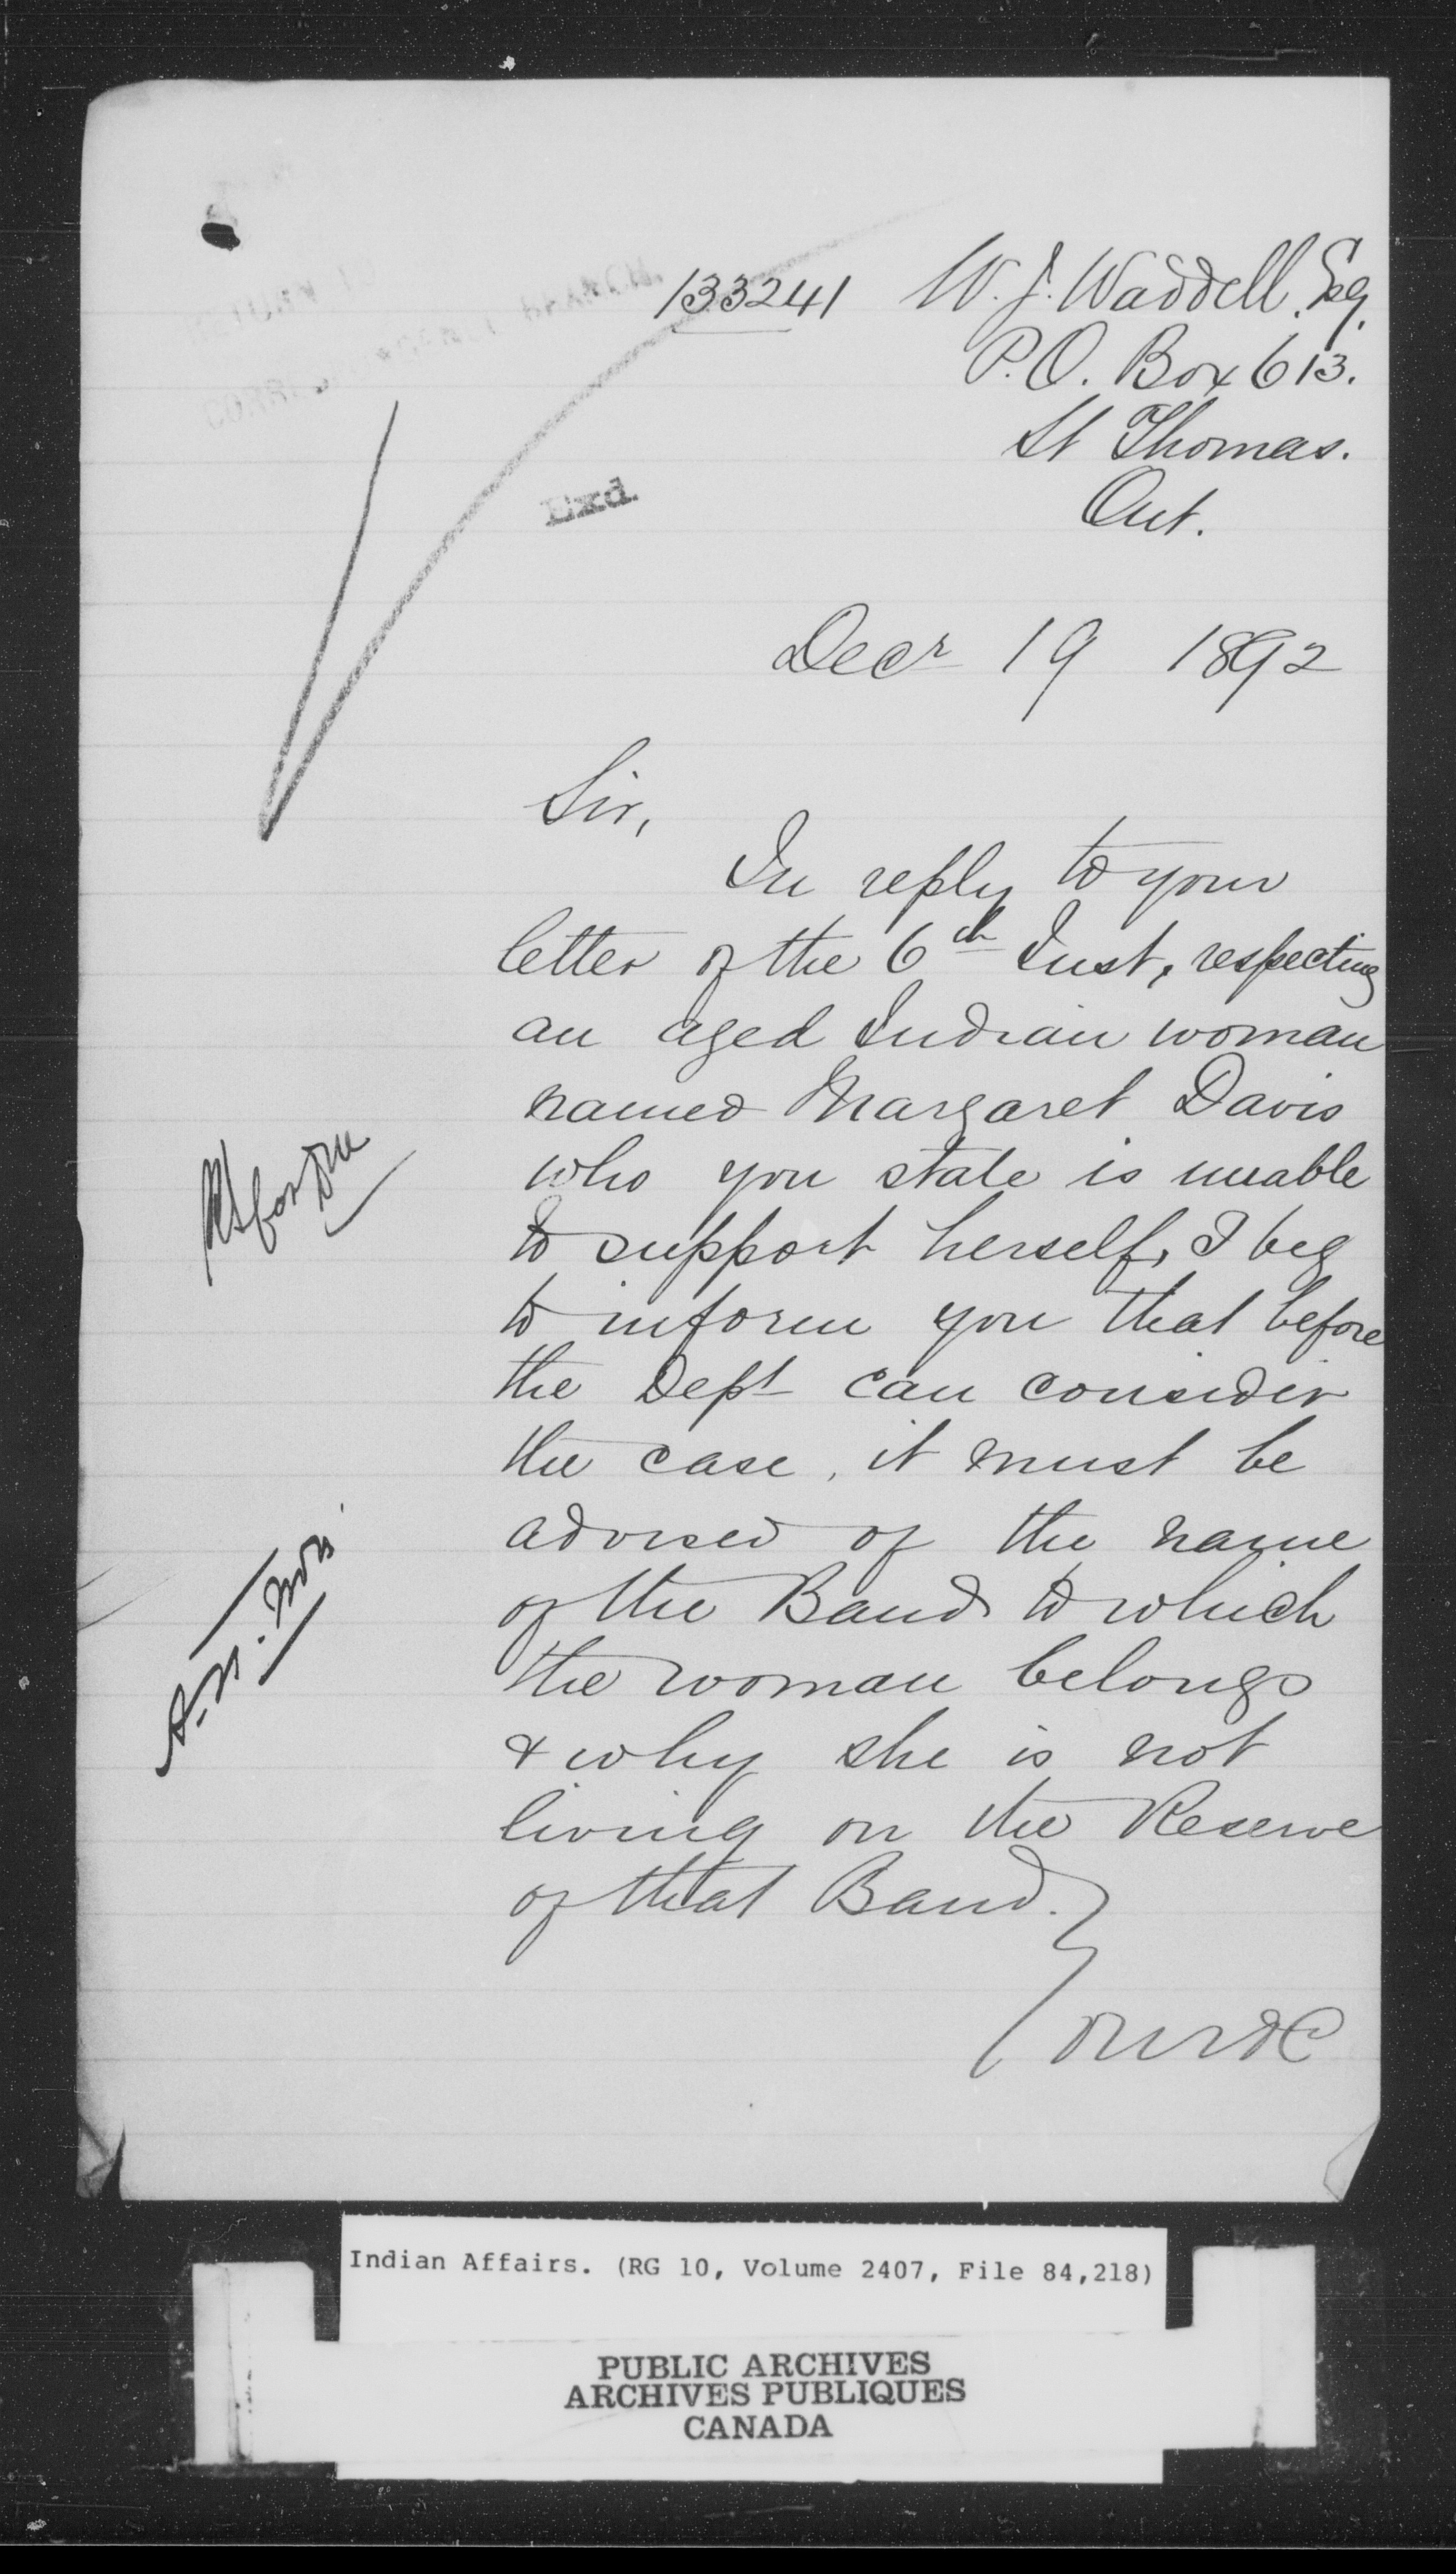 133241 W. J. Waddell. Esq.
P.O. Box 613.
St Thomas.
Ont.
Exd.
Decr 19 1892
Sir,
In reply to your
letter of the 6th Inst, respecting
an aged Indian woman
named Margaret Davis
who you state is unable
to support herself, I beg
to inform you that before
the Dept can consider
the case, it must be
advised of the name
of the Band to which
the woman belongs
& why she is not
living on the Reserve
of that Band.
Yours &c
Indian Affairs. (RG 10, Volume 2407, File 84,218)
PUBLIC ARCHIVES
ARCHIVES PUBLIQUES
CANADA